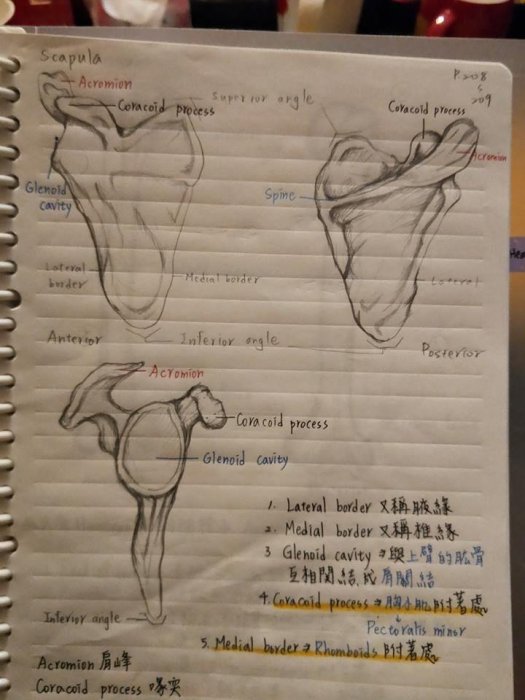 Scapula
P.208
~
209
Acromion
Coracoid process
Superior angle
Coracoid process
Acromion
Glenoid
cavity
Spine
Lateral
border
Medial border
Lateral
Anterior
Inferior angle
Posterior
Acromion
Coracoid process
Glenoid cavity
1. Lateral border 又稱腋緣
2. Medial border 又稱椎緣
3 Glenoid cavity → 與上臂的肱骨
互相關結成肩關結
4. Coracoid process → 胸小肌附著處
Pectoralis minor
Inferior angle
5. Medial border → Rhomboids 附著處
Acromion 肩峰
Coracoid process 喙突